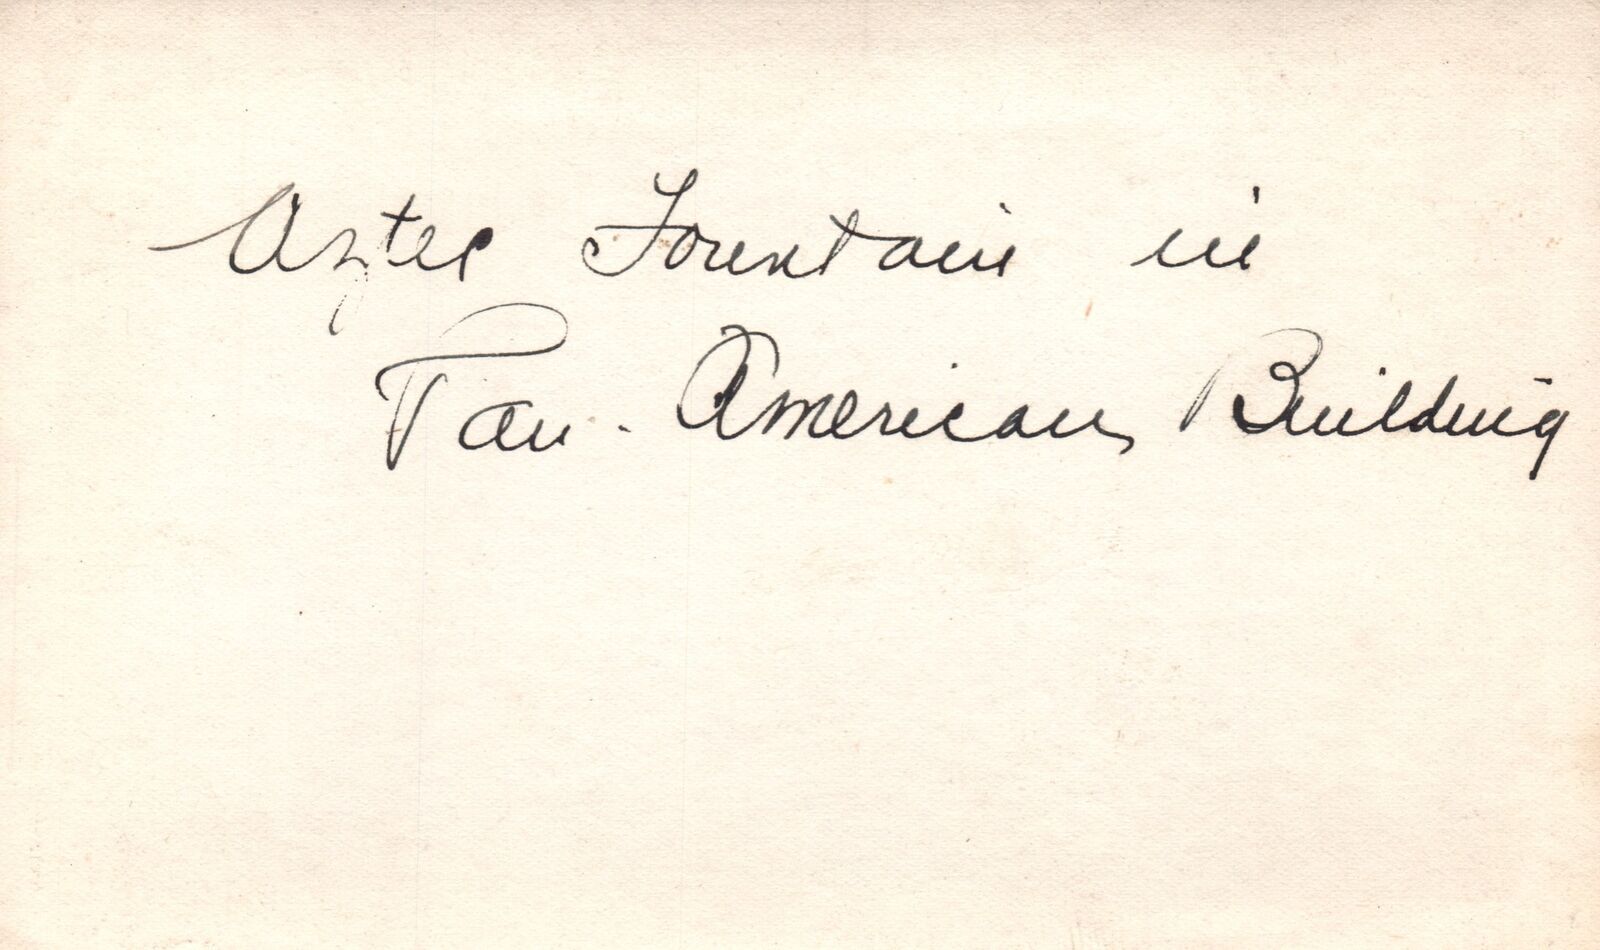 Aztec Fountain in
Pan. American Building